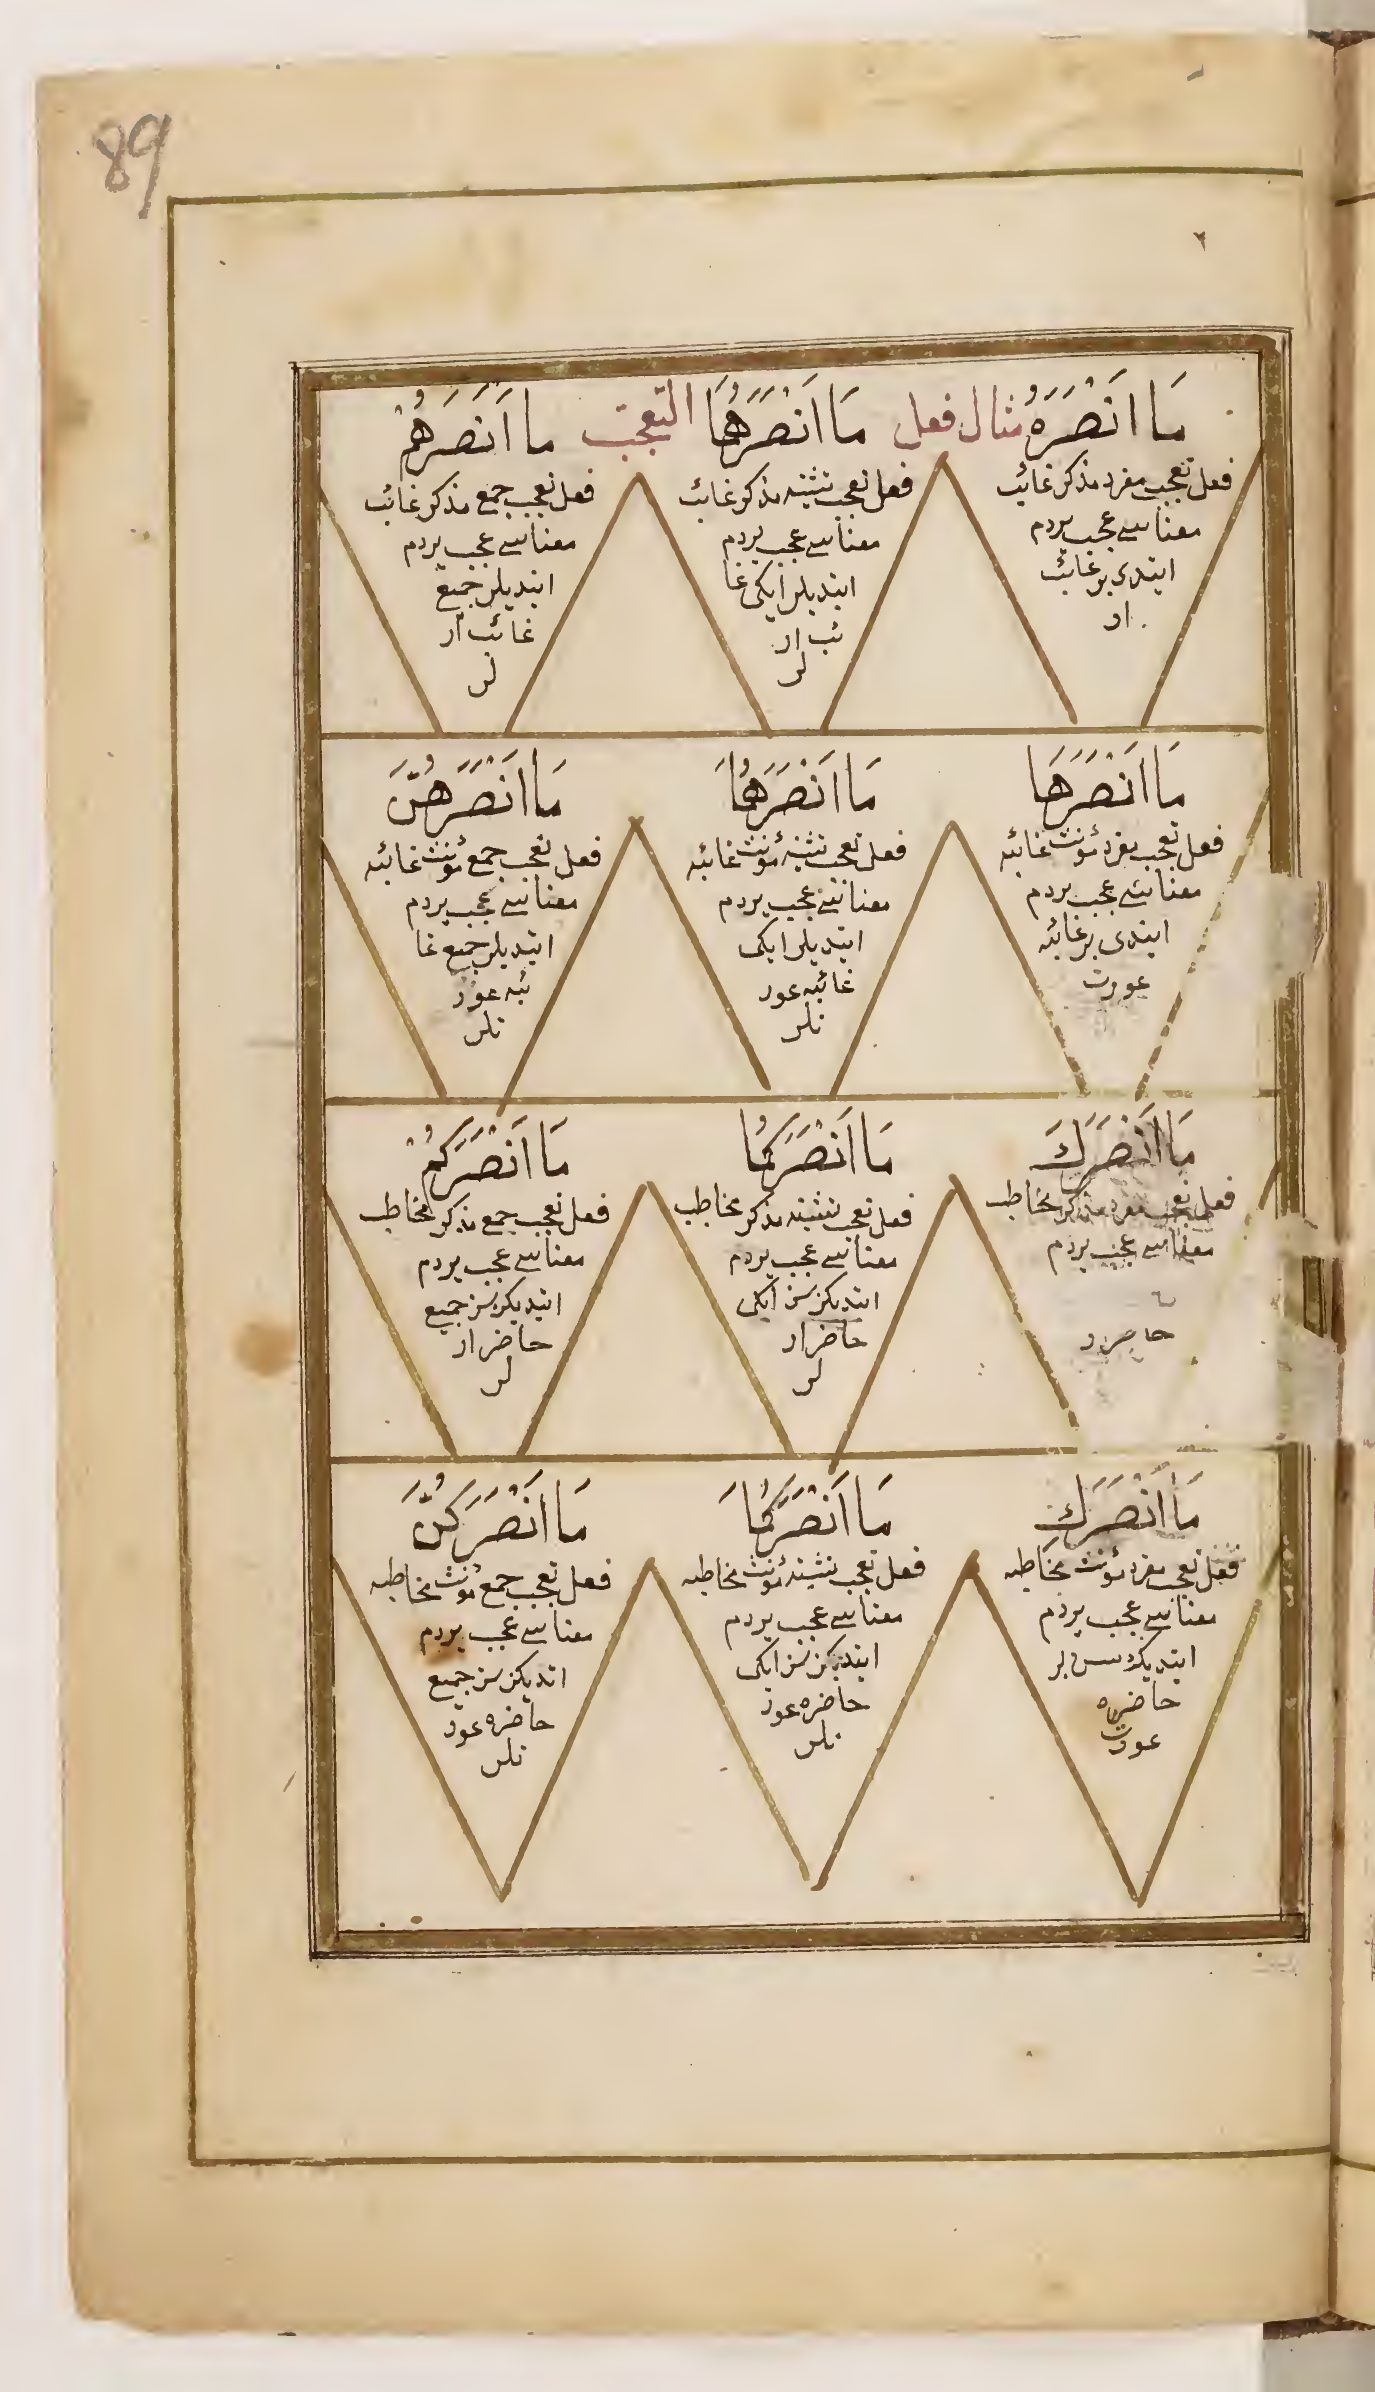 89
مَا اَنْصَرَهُ مثال فعل مَا اَنْصَرَهُمَا التعجب مَا اَنْصَرَهُمْ
فعل تعجب مفرد مذكر غائب
معناسى عجب يردم
ايتدى بر غائب
ار
فعل تعجب تثنيه مذكر غائب
معناسى عجب يردم
ايتديلر ايكى غا
ئب ار
لر
فعل تعجب جمع مذكر غائب
معناسى عجب يردم
ايتديلر جميع
غائب ار
لر
مَا اَنْصَرَهَا
فعل تعجب مفرد مؤنث غائبه
معناسى عجب يردم
ايتدى بر غائبه
عورت
مَا اَنْصَرَهُمَا
فعل تعجب تثنيه مؤنث غائبه
معناسى عجب يردم
ايتديلر ايكى
غائبه عور
تلر
مَا اَنْصَرَهُنَّ
فعل تعجب جمع مؤنث غائبه
معناسى عجب يردم
ايتديلر جميع غا
ئبه عور
تلر
مَا اَنْصَرَكَ
فعل تعجب مفرد مذكر مخاطب
معناسى عجب يردم
حاضر
مَا اَنْصَرَكُمَا
فعل تعجب تثنيه مذكر مخاطب
معناسى عجب يردم
ايتديكز سز ايكى
حاضر ار
لر
مَا اَنْصَرَكُمْ
فعل تعجب جمع مذكر مخاطب
معناسى عجب يردم
ايتديكز سز جميع
حاضر ار
لر
مَا اَنْصَرَكِ
فعل تعجب مفرد مؤنث مخاطبه
معناسى عجب يردم
ايتديك سن بر
حاضره
عورت
مَا اَنْصَرَكُمَا
فعل تعجب تثنيه مؤنث مخاطبه
معناسى عجب يردم
ايتديكز سز ايكى
حاضره عور
تلر
مَا اَنْصَرَكُنَّ
فعل تعجب جمع مؤنث مخاطبه
معناسى عجب يردم
اتديكز سز جميع
حاضره عور
تلر